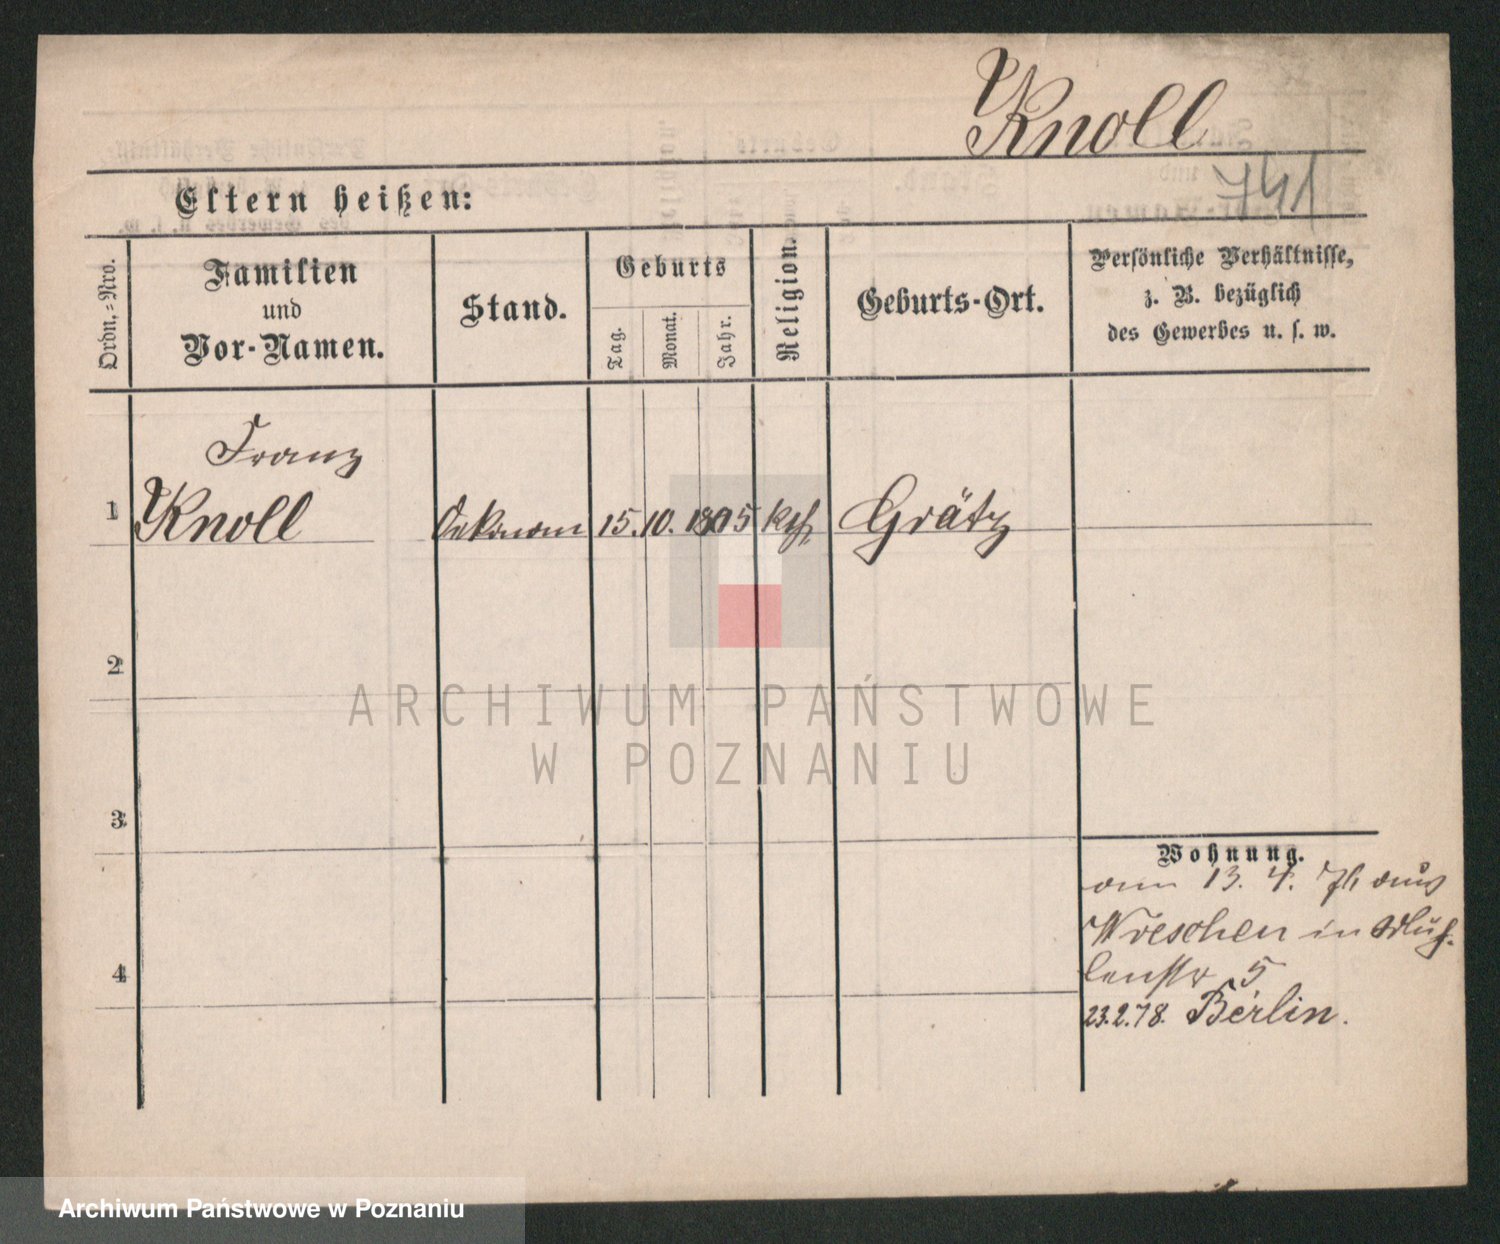 Knoll
741
Eltern heißen:
Ordn.-Nro.
Familien
und
Vor-Namen.
Stand.
Geburts
Tag.
Monat.
Jahr.
Religion.
Geburts-Ort.
Persönliche Verhältnisse,
z. B. bezüglich
des Gewerbes u. s. w.
Franz
1 Knoll Oekonom 15. 10. 1805 kth Grätz
2
3
4
Wohnung.
am 13. 4. 76 aus
Wreschen in Müh-
lenstr 5
23.2.78. Berlin.
ARCHIWUM PAŃSTWOWE
W POZNANIU
Archiwum Państwowe w Poznaniu